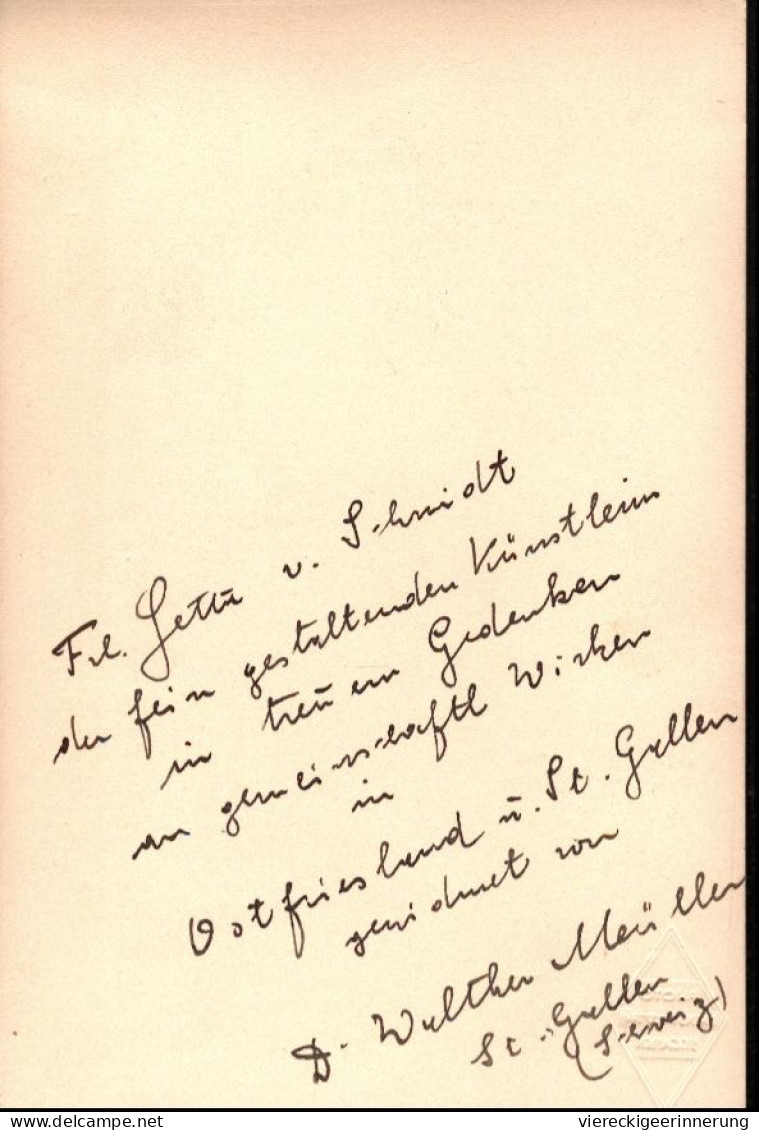 Frl. Hetta v. Schmidt
der fein gestaltenden Künstlerin
in treuem Gedenken
an gemeinschaftl Wirken
in
Ostfriesland u. St. Gallen
gewidmet von
D. Walther Müller
St. Gallen
(Schweiz)
DELCAMPE.NET
viereckigeerinnerung